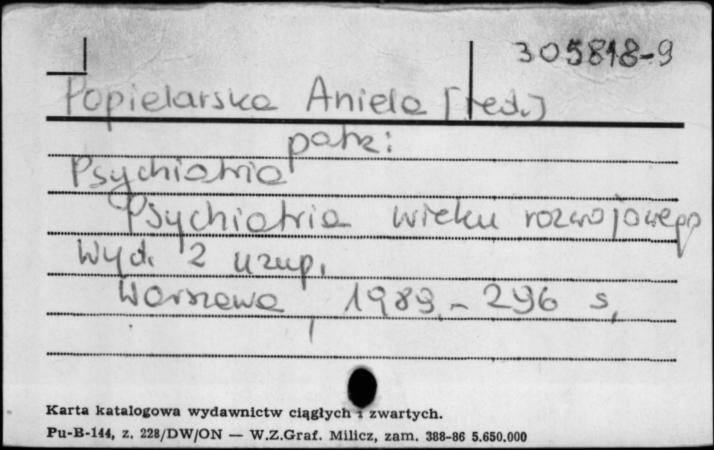 305818-9
Popielarska Aniela [red.]
patrz:
Psychiatria
Psychiatria wieku rozwojowego
Wyd. 2 uzup.
Warszawa, 1989. - 296 s.
Karta katalogowa wydawnictw ciągłych i zwartych.
Pu-B-144, z. 228/DW/ON — W.Z.Graf. Milicz, zam. 388-86 5.650.000